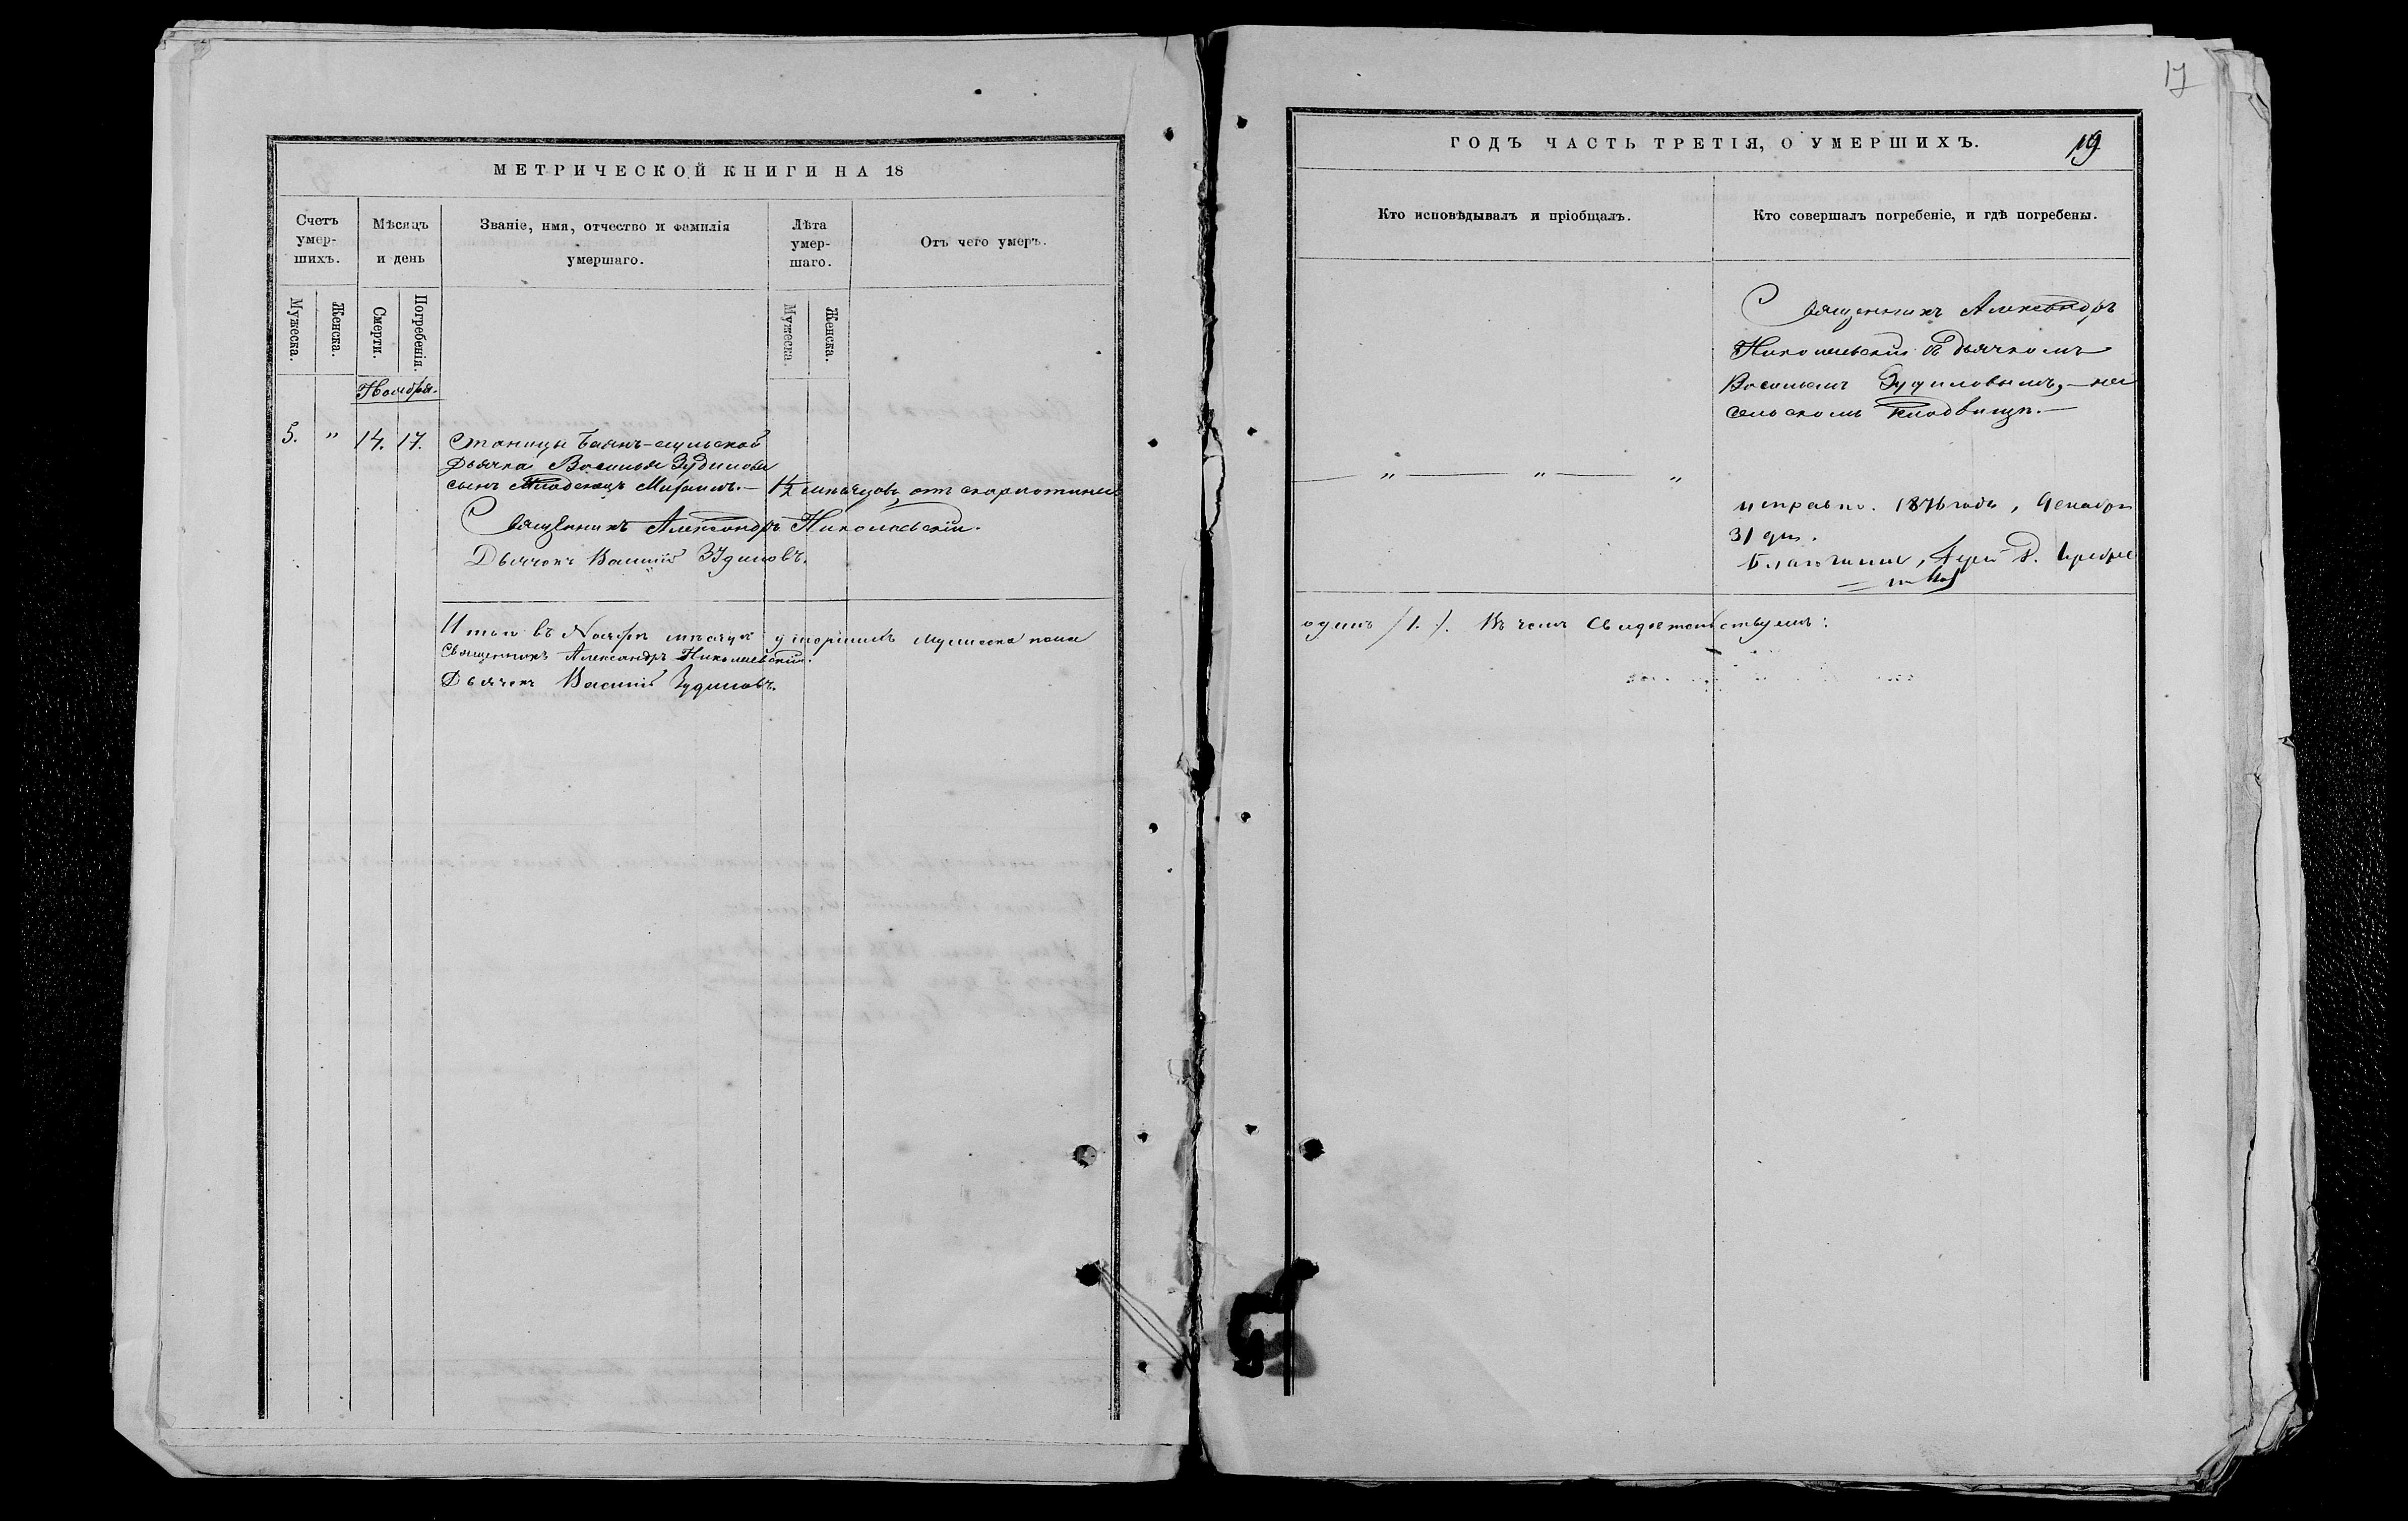 17
МЕТРИЧЕСКОЙ КНИГИ НА 18
ГОДЪ ЧАСТЬ ТРЕТІЯ, О УМЕРШИХЪ.
19
Счетъ умер-шихъ.
Мѣсяцъ и день
Званіе, имя, отчество и фамилія умершаго.
Лѣта умер-шаго.
Отъ чего умеръ.
Кто исповѣдывалъ и пріобщалъ.
Кто совершалъ погребеніе, и гдѣ погребены.
Мужеска.
Женска.
Смерти.
Погребенія.
Мужеска.
Женска.
Ноября.
5. " 14. 17. Станицы Баянъ-аульской
дьячка Василья Зудилова
сынъ младенецъ Михаилъ.— 1½ мѣсяцовъ, отъ скарлатины
Священникъ Александръ Николаевскій.
Дьячокъ Василій Зудиловъ.
Итого въ Ноябрѣ мѣсяцѣ умершихъ мужеска пола
Священникъ Александръ Николаевскій.
Дьячекъ Василій Зудиловъ.
" — " — "
Священникъ Александръ
Николаевскій съ дьячкомъ
Васильемъ Зудиловымъ,— на
сельскомъ кладбищѣ.—
исправно. 1876 года, Декабря
31 дня.
Благочинный, Іерей
одинъ /1./. Въ чемъ Свидѣтельствуемъ: